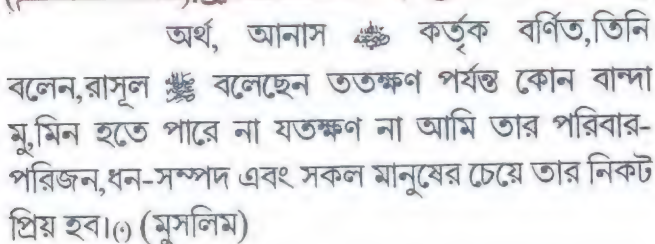 অর্থ, আনাস কর্তৃক বর্ণিত,তিনি
বলেন,রাসূল ﷺ বলেছেন ততক্ষণ পর্যন্ত কোন বান্দা
মু,মিন হতে পারে না যতক্ষণ না আমি তার পরিবার-
পরিজন,ধন-সম্পদ এবং সকল মানুষের চেয়ে তার নিকট
প্রিয় হব।(১) (মুসলিম)